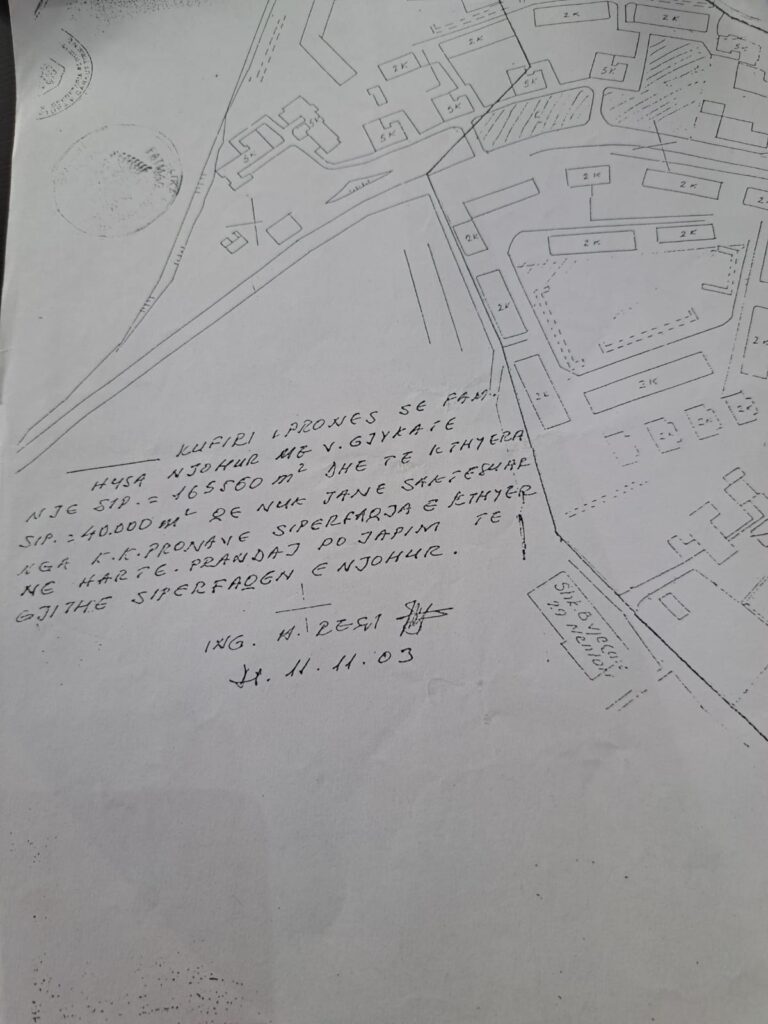 2K
2K
2K
5K
2K
5K
5K
5K
5K
5K
5K
2K
2K
2K
2K
2K
2K
2K
2K
KUFIRI I PRONES SE FAM.
HYSA NJOHUR ME V. GJYKATE
NJE SIP. = 165560 m² DHE TE KTHYERA
SIP. = 40.000 m² QE NUK JANE SAKTESUAR
NGA K.K.PRONAVE SIPERFAQJA E KTHYER
NE HARTE. PRANDAJ PO JAPIM TE
GJITHE SIPERFAQEN E NJOHUR.
ING.
11.11.03
Shk. 8 vjecare
29 Nentori